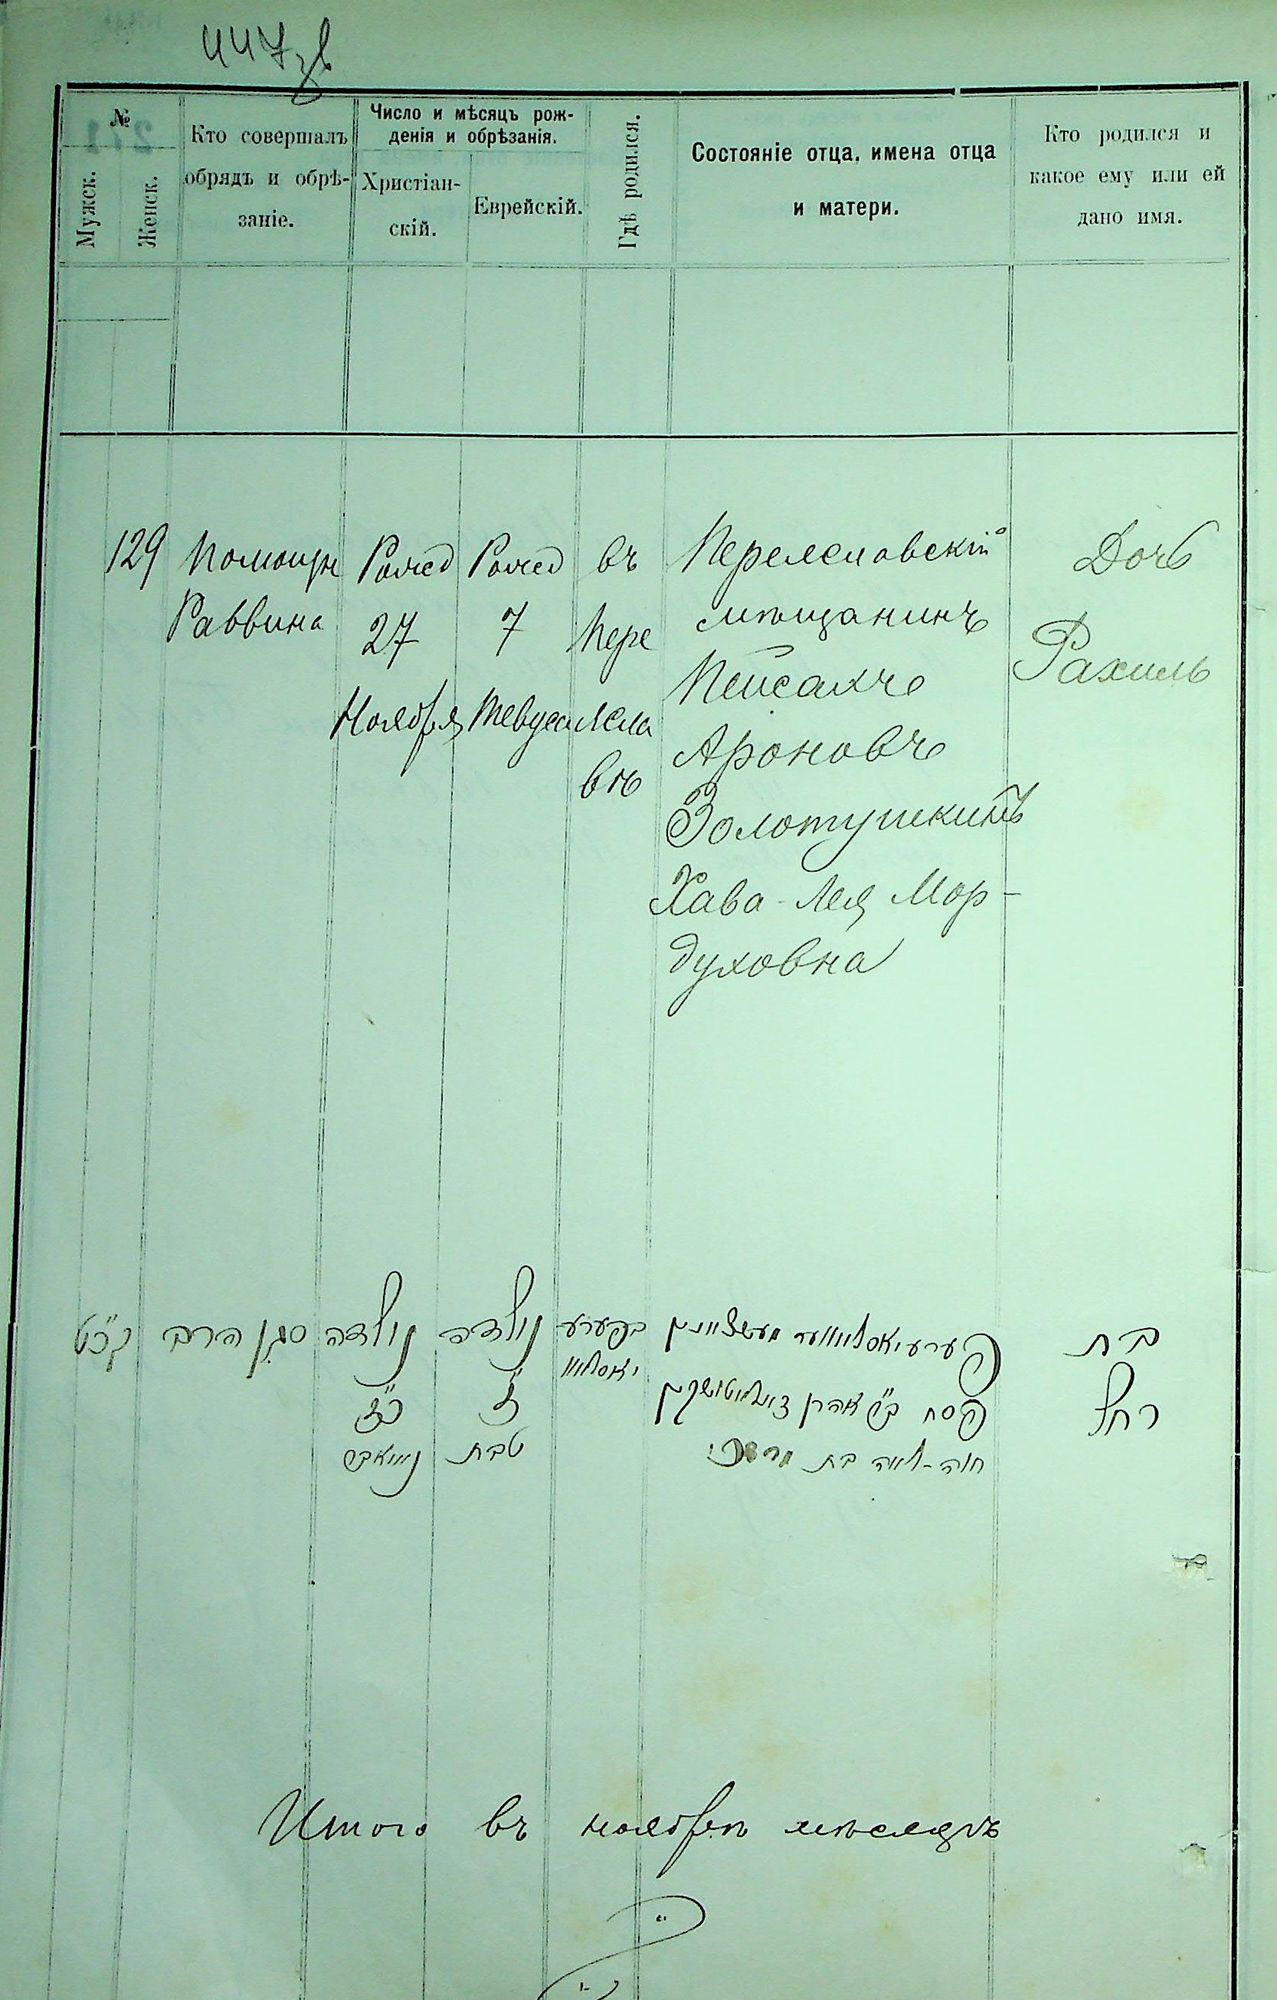 447 зв
№
Мужск.
Женск.
Кто совершалъ
обрядъ и обрѣ-
заніе.
Число и мѣсяцъ рож-
денія и обрѣзанія.
Христіан-
скій.
Еврейскій.
Гдѣ родился.
Состояніе отца, имена отца
и матери.
Кто родился и
какое ему или ей
дано имя.
129
Помощн
Раввина
Рожд
27
Ноября
Рожд
7
Тевуса
въ
Пере
ясла
вѣ
Переяславскій
мѣщанинъ
Пейсахъ
Ароновъ
Золотушкинъ
Хава-Лея Мор-
духовна
Дочь
Рахиль
קכ״ט
סגן הרב
נולדה
כ״ז
נויאבר
נולדה
ז׳
טבת
בפערע
יאסלאוו
פערעיאסלאווער מעשצאנין
פסח ב״ר אהרן זאלאטושקין
חוה-לאה בת מרדכי
בת
רחל
Итого въ ноябрѣ мѣсяцѣ